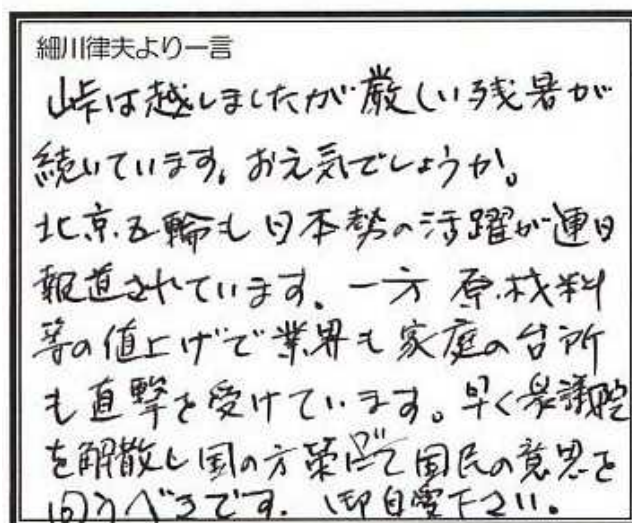 細川律夫より一言
峠は越しましたが厳しい残暑が
続いています。お元気でしょうか。
北京五輪も日本勢の活躍が連日
報道されています。一方 原材料
等の値上げで業界も家庭の台所
も直撃を受けています。早く衆議院
を解散し国の方策について国民の意思を
問うべきです。御自愛下さい。